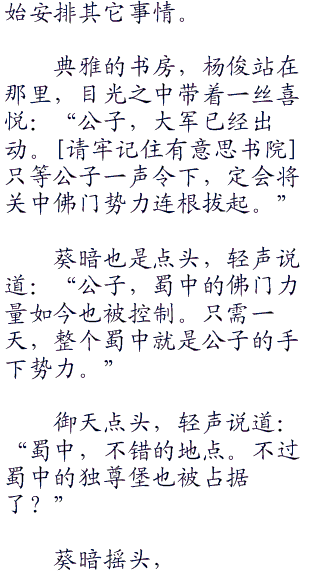 始安排其它事情。
典雅的书房，杨俊站在
那里，目光之中带着一丝喜
悦：“公子，大军已经出
动。[请牢记住有意思书院]
只等公子一声令下，定会将
关中佛门势力连根拔起。”
葵暗也是点头，轻声说
道：“公子，蜀中的佛门力
量如今也被控制。只需一
天，整个蜀中就是公子的手
下势力。”
御天点头，轻声说道：
“蜀中，不错的地点。不过
蜀中的独尊堡也被占据
了？”
葵暗摇头，